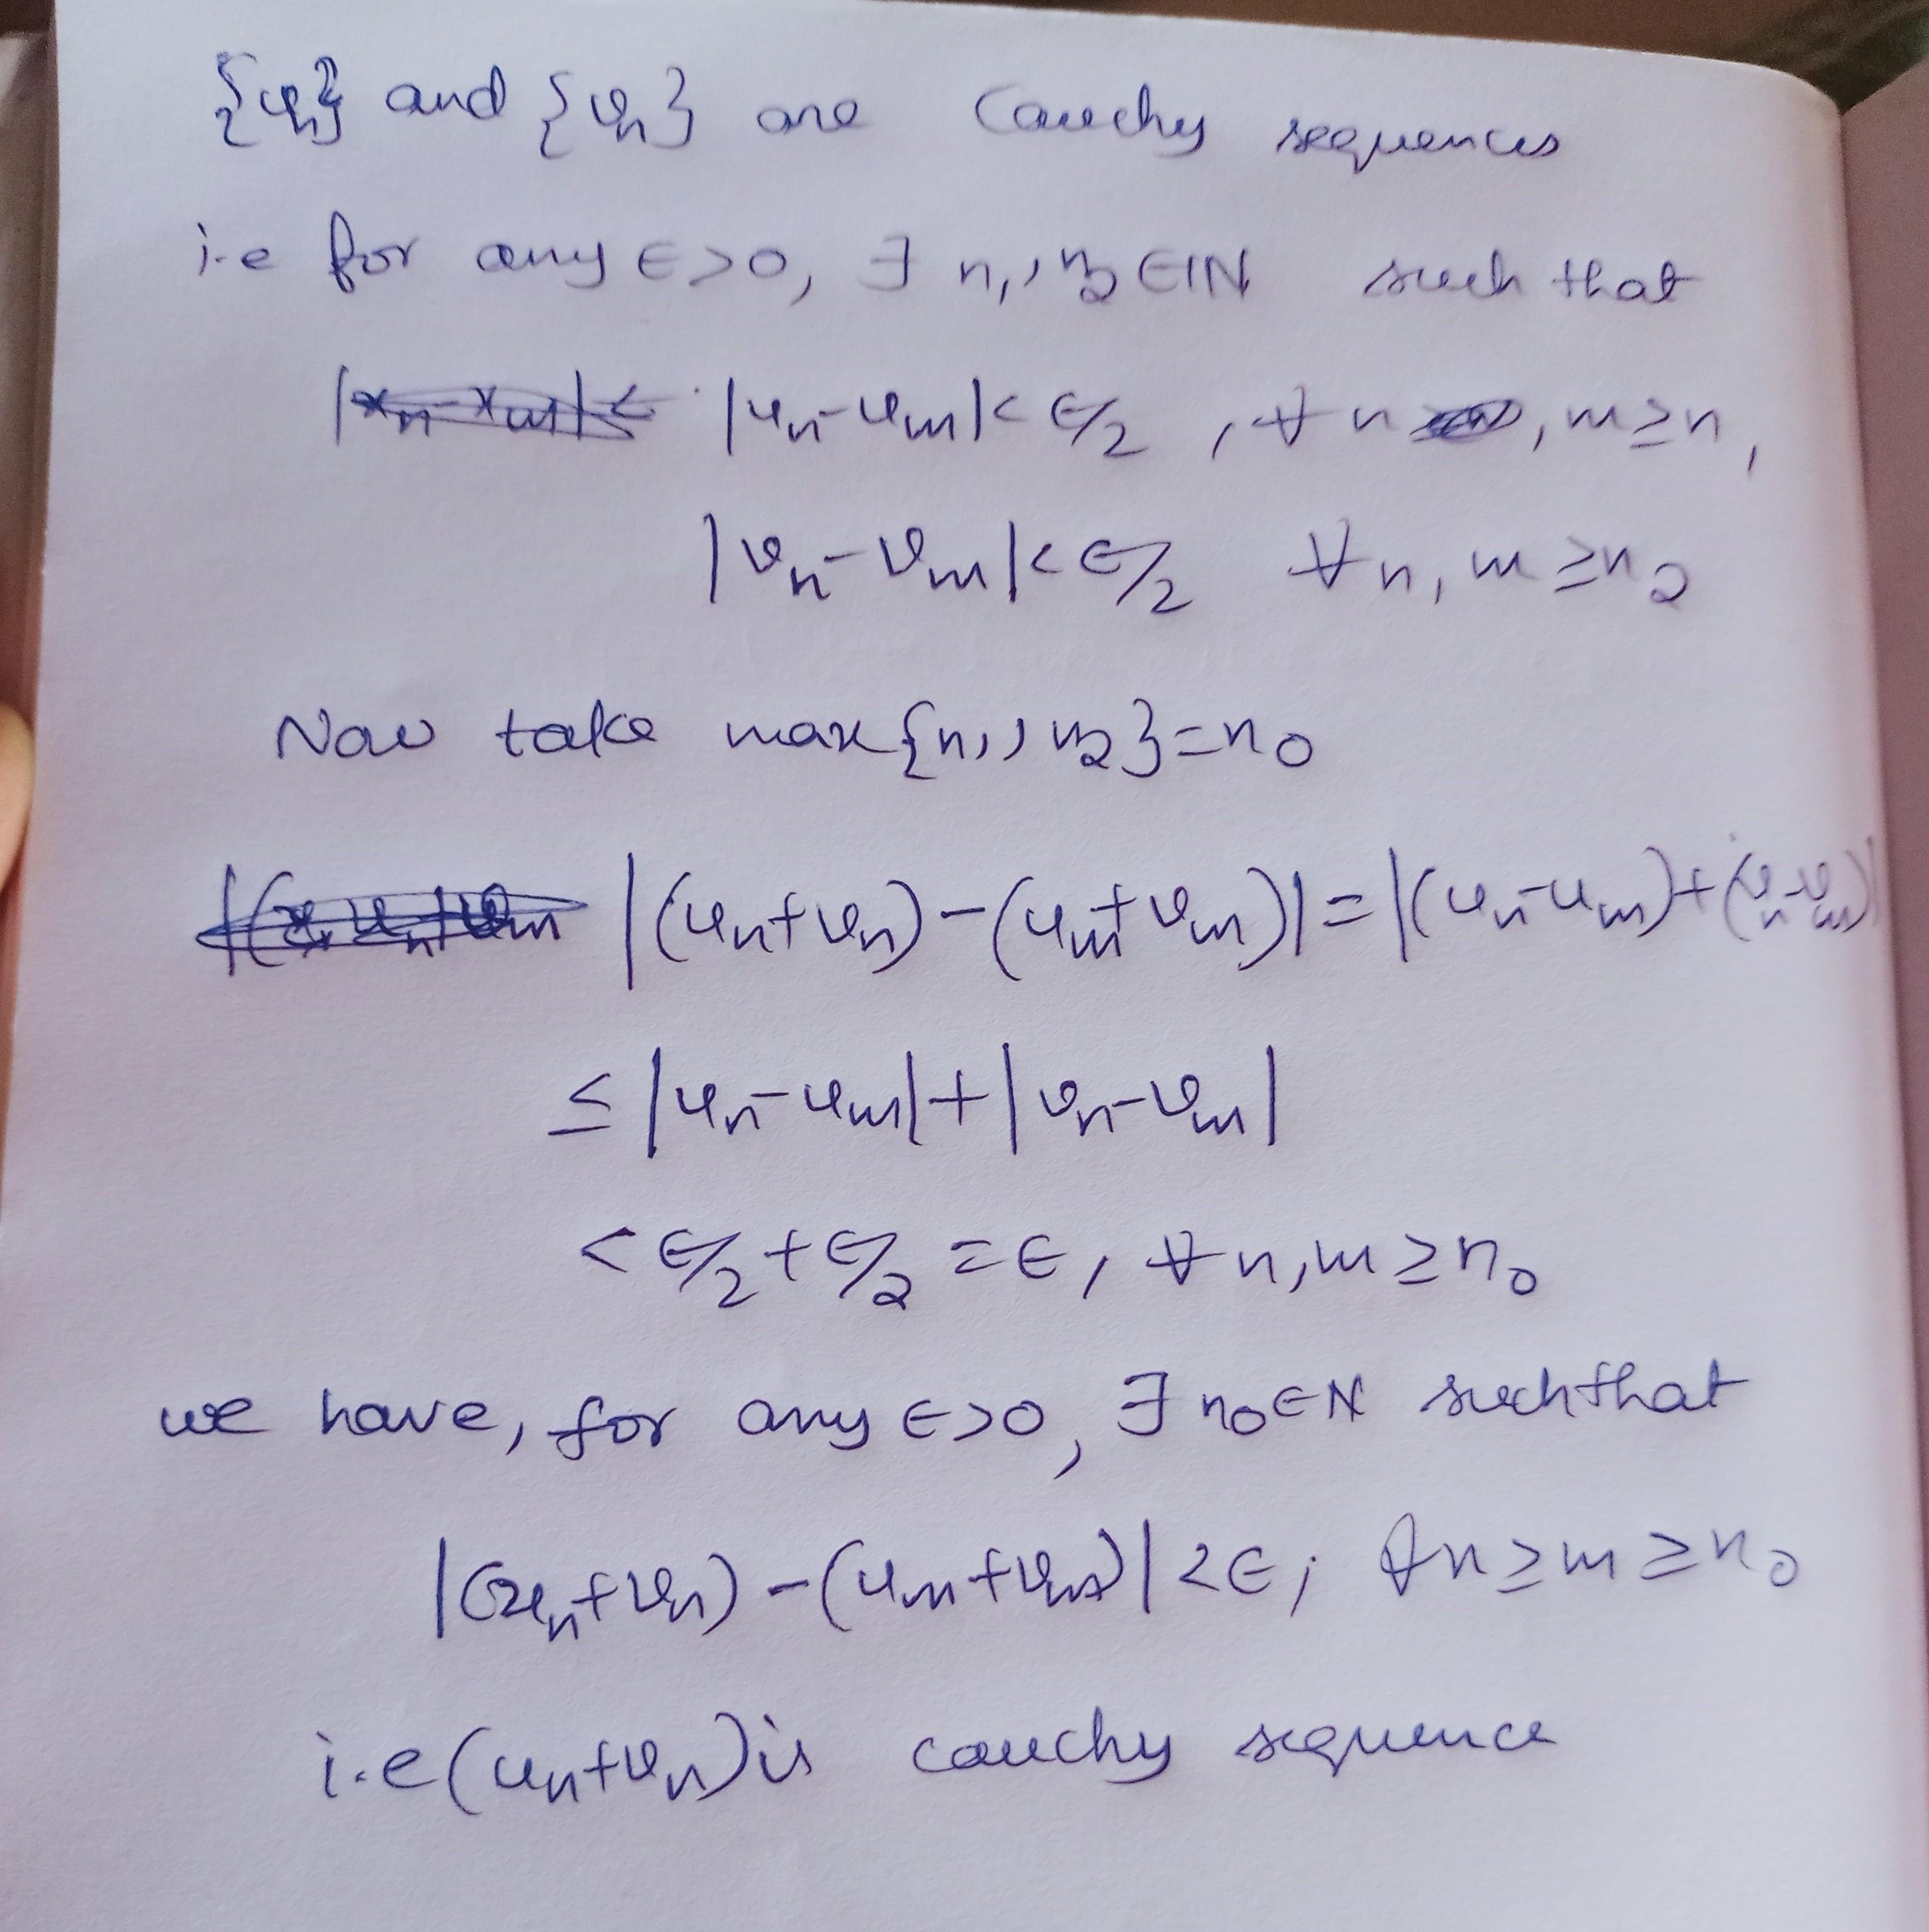 {uₙ} and {vₙ} are Cauchy sequences
i.e for any ϵ>0, ∃ n₁, n₂ ∈ ℕ such that
|uₙ-uₘ|< ϵ/2 , ∀ n , m ≥ n₁
|vₙ-vₘ|< ϵ/2 ∀ n, m ≥ n₂
Now take max{n₁, n₂}=n₀
|(uₙ+vₙ)-(uₘ+vₘ)|=|(uₙ-uₘ)+(vₙ-vₘ)|
≤ |uₙ-uₘ|+|vₙ-vₘ|
< ϵ/2 + ϵ/2 = ϵ, ∀ n,m ≥ n₀
we have, for any ϵ>0, ∃ n₀∈N such that
|(uₙ+vₙ)-(uₘ+vₘ)|<ϵ; ∀ n ≥ m ≥ n₀
i.e (uₙ+vₙ) is cauchy sequence